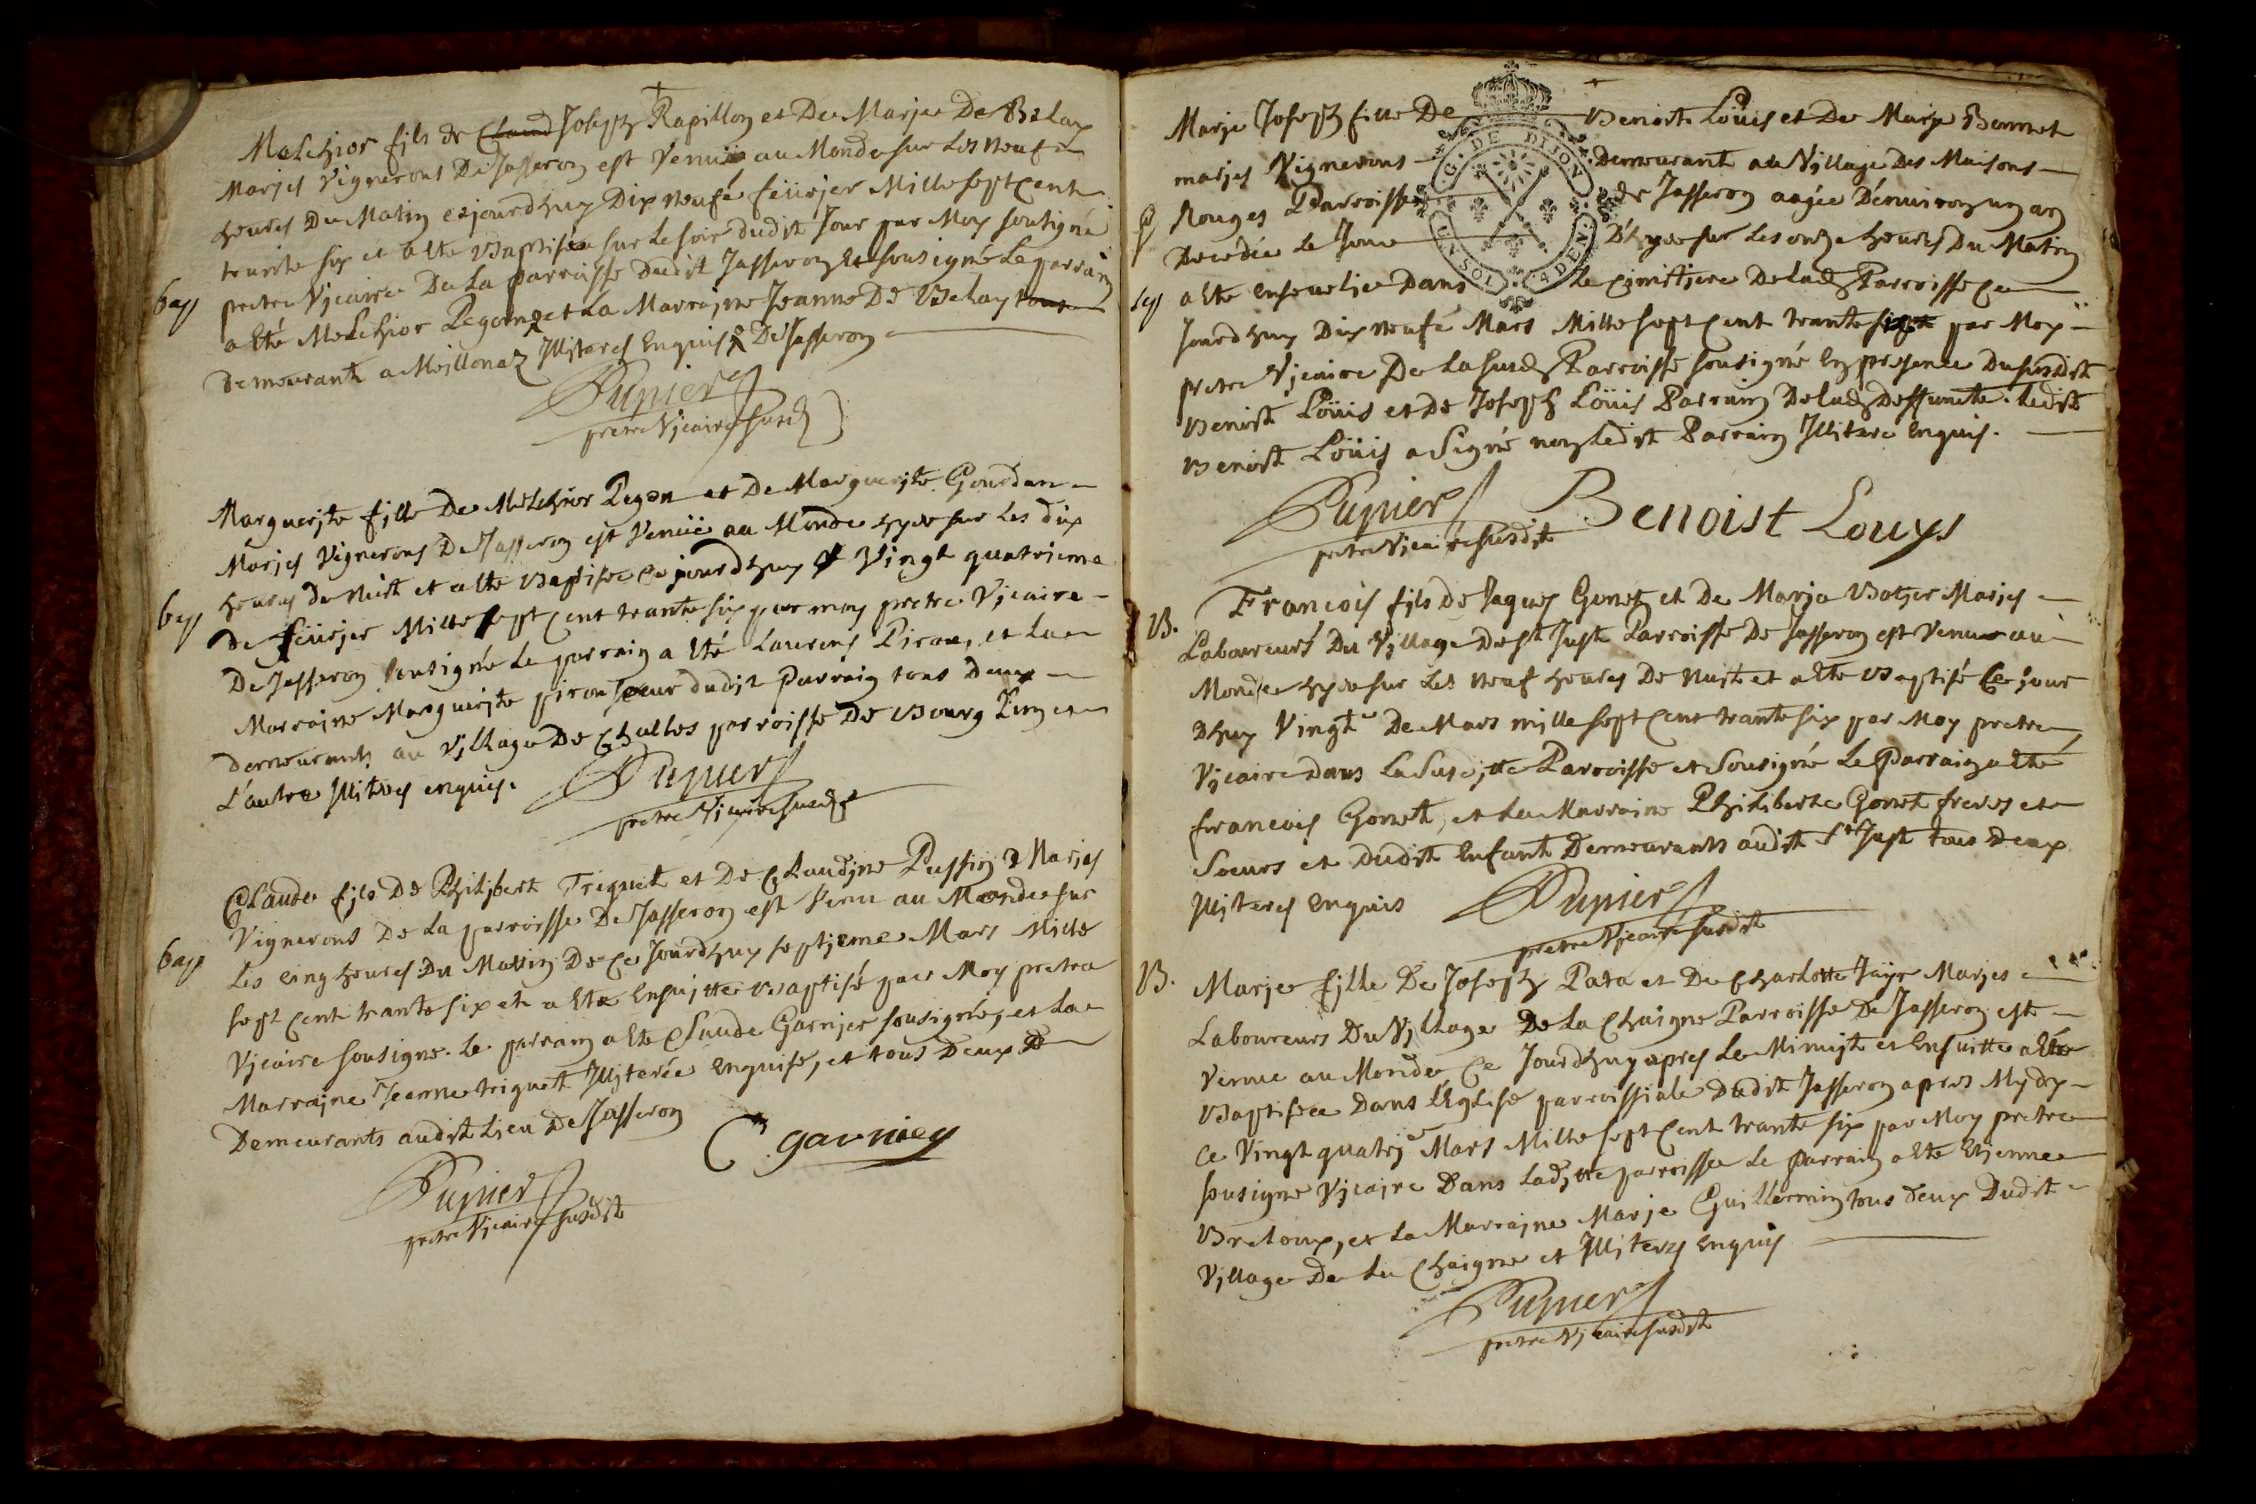 Melchior fils de Claud Joseph Rapillon et De Marie De Belay
Mariés Vignerons De Jasseron est Venu au Monde sur Les Neuf
heures Du Matin cejourdhuy Dix neufe feurier Mille sept Cent
trente six et a Ete Baptisé sur Le soir dudit Jour par Moy sousigné
bap
pretre Vicaire De La parroisse dudit Jasseron Le parrain
a Eté Melchior Pegon et La Marraine Jeanne De Belay tous
Demeurants a Meillonaz Illiteres Enquis De Jasseron
Pupier
pretre Vicaire susd
Marguerite fille De Melchior Pegon et De Marguerite Gourdan
Mariés Vignerons De Jasseron est Venüe au Monde hyer sur Les dix
heures De Nuit et a Ete Baptisée ce jourdhuy Vingt quatrieme
bap
de feürier Mille sept Cent trante six par moy pretre Vicaire
De Jasseron sousigné Le parrain a Eté Laurens Piron, et La
Marraine Marguerite piron soeur dudit Parrain tous deux
demeurants au Village De Challes parroisse De Bourg L'un et
L'autre Illitres enquis.
Pupier
pretre Vicaire susd
Claude fils De Philibert Triquet et De Claudine Pussin Mariés
Vignerons De La parroisse De Jasseron est Venu au Monde sur
bap
Les cinq heures Du Mattin De Ce Jourdhuy septieme Mars Mille
sept Cent trante six et a Ete Ensuitte Baptisé par Moy pretre
Vicaire sousigne. Le parrain a Ete Claude Garnier sousigné, et La
Marraine Jeanne triquet Illiterée Enquise, et tous Deux
Demeurants audit Lieu De Jasseron
C garnier
Pupier
pretre Vicaire susdit
G. DE DIJON
UN SOL 4 DEN
Marie Joseph fille De Benoist Loüis et De Marie Bonnet
mariés Vignerons Demeurant au Village Des Maisons
Rouges Parroisse de Jasseron aagée D'enuiron un an
Decedée Le Jour D'hyer sur Les onze heures Du Matin
sep
a Ete Enseuelie Dans Le Cimitiere De lad Parroisse Ce
Jourdhuy Dix neufe Mars Mille sept Cent trante six par Moy
pretre Vicaire De La susd Parroisse sousigné En presence Du susdit
Benoist Loüis et De Joseph Loüis Parrain De lad Deffuncte. Ledit
Benoist Loüis a Signé non Ledit Parrain Illitere Enquis.
Pupier Benoist Louys
pretre Vicaire susdit
B.
Francois fils De Jaques Gonet et De Maria Batier Mariés
Laboureurs Du Village De St Just Parroisse De Jasseron est Venu au
Monde hyer sur Les Neuf heures De Nuit et a Ete Baptisé Ce jour
dhuy Vingte De Mars mille sept Cent trante six par Moy pretre
Vicaire dans La Susditte Parroisse et Sousigné Le Parrain a Eté
francois Gonet, et La Marraine Philiberte Gonet freres et
Soeurs et dudit Enfant Demeurants audit St Just tous Deux
Illiteres Enquis
Pupier
pretre Vicaire susdit
B.
Marie fille De Joseph Para et De Charlotte Mariés
Laboureurs Du Village De La Chaigne Parroisse De Jasseron est
Venue au Monde Ce Jourdhuy apres Le Minuit et Ensuitte a Eté
Baptisée Dans L'Eglise parroissiale Dudit Jasseron apres Mydy
Ce Vingt quatrie Mars Mille sept Cent trante six par Moy pretre
sousigne Vicaire Dans Laditte parroisse Le Parrain a Ete Etienne
Breloux, et La Marraine Marie Guillermin tous deux Dudit
Village De La Chaigne et Illiteres Enquis
Pupier
pretre Vicaire susdit